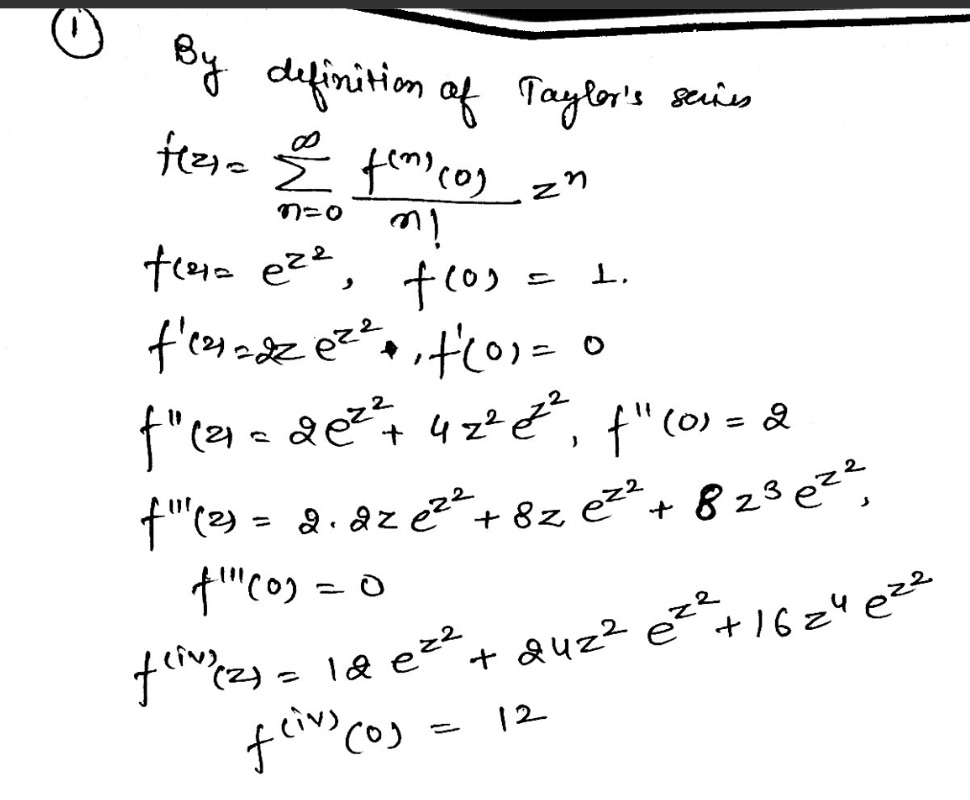 ①
By definition of Taylor's series
f(z) = ∑_{n=0}^{∞} f^{(n)}(0)/n! z^n
f(z) = e^{z^2}, f(0) = 1.
f'(z) = 2z e^{z^2}, f'(0) = 0
f''(z) = 2e^{z^2} + 4z^2 e^{z^2}, f''(0) = 2
f'''(z) = 2.2z e^{z^2} + 8z e^{z^2} + 8z^3 e^{z^2},
f'''(0) = 0
f^{(iv)}(z) = 12 e^{z^2} + 24z^2 e^{z^2} + 16z^4 e^{z^2}
f^{(iv)}(0) = 12